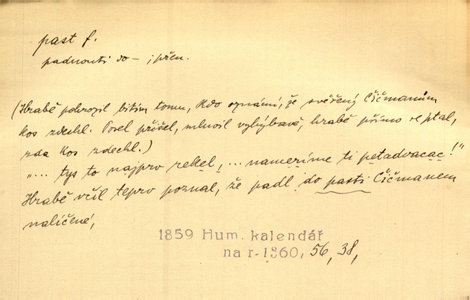 past f.
padnouti do – i přen.
(Hrabě pohrozil bitím tomu, kdo oznámí, že svěřený Čičmanům
kos zdechl. Posel přišel, mluvil vyhýbavě, hrabě přímo se ptal,
zda kos zdechl.)
"... tys to najprv rekel, ... namerime ti petadvacac!"
Hrabě vzil teprv poznal, že padl do pasti Čičmanem
nalíčené,
1859 Hum. kalendář
na r. 1860, 56, 38,